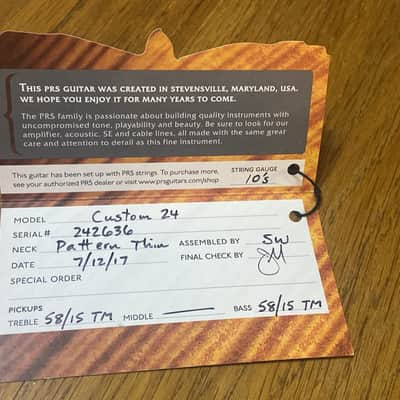 THIS PRS GUITAR WAS CREATED IN STEVENSVILLE, MARYLAND, USA.
WE HOPE YOU ENJOY IT FOR MANY YEARS TO COME.
The PRS family is passionate about building quality instruments with
uncompromised tone, playability and beauty. Be sure to look for our
amplifier, acoustic, SE and cable lines, all made with the same great
care and attention to detail as this fine instrument.
This guitar has been set up with PRS strings. To purchase more,
see your authorized PRS dealer or visit www.prsguitars.com/shop
STRING GAUGE
10's
MODEL Custom 24
SERIAL# 242636
NECK Pattern Thin ASSEMBLED BY SW
DATE 7/12/17 FINAL CHECK BY JM
SPECIAL ORDER
PICKUPS
TREBLE 58/15 TM MIDDLE — BASS 58/15 TM